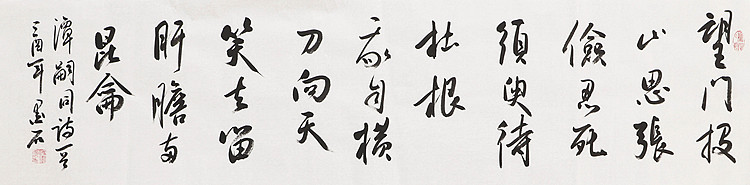 望門投
止思張
儉忍死
須臾待
杜根
我自橫
刀向天
笑去留
肝膽兩
昆侖
譚嗣同詩一首
酉年 石